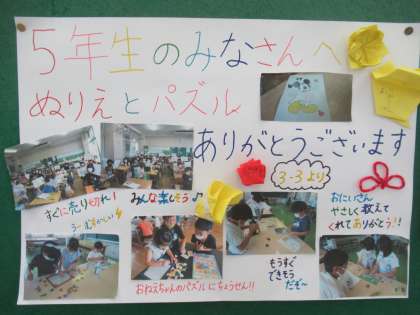 5年生のみなさんへ
ぬりえとパズル
ありがとうございます
3-3より
すぐに売り切れ!
みんな楽しそう♪
おにいさん
やさしく教えて
くれてありがとう!!
もうすぐ
できそう
だぞ~
おねえちゃんのパズルにちょうせん!!